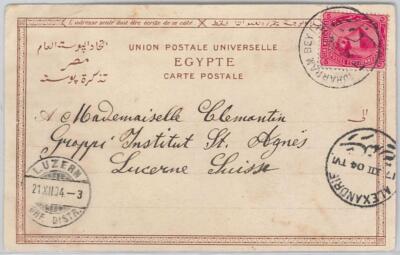 L'adresse seule doit être écrite de ce côté
UNION POSTALE UNIVERSELLE
EGYPTE
CARTE POSTALE
اتحاد البوستة العام
مصر
تذكرة بوستة
MOHARRAM BEY
A Mademoiselle Clementin
Groppi Institut St. Agnés
Lucerne Suisse
الى
LUZERN
21.XII.04.-3
BRF. DISTR.
ALEXANDRIE
XII 04 TVI